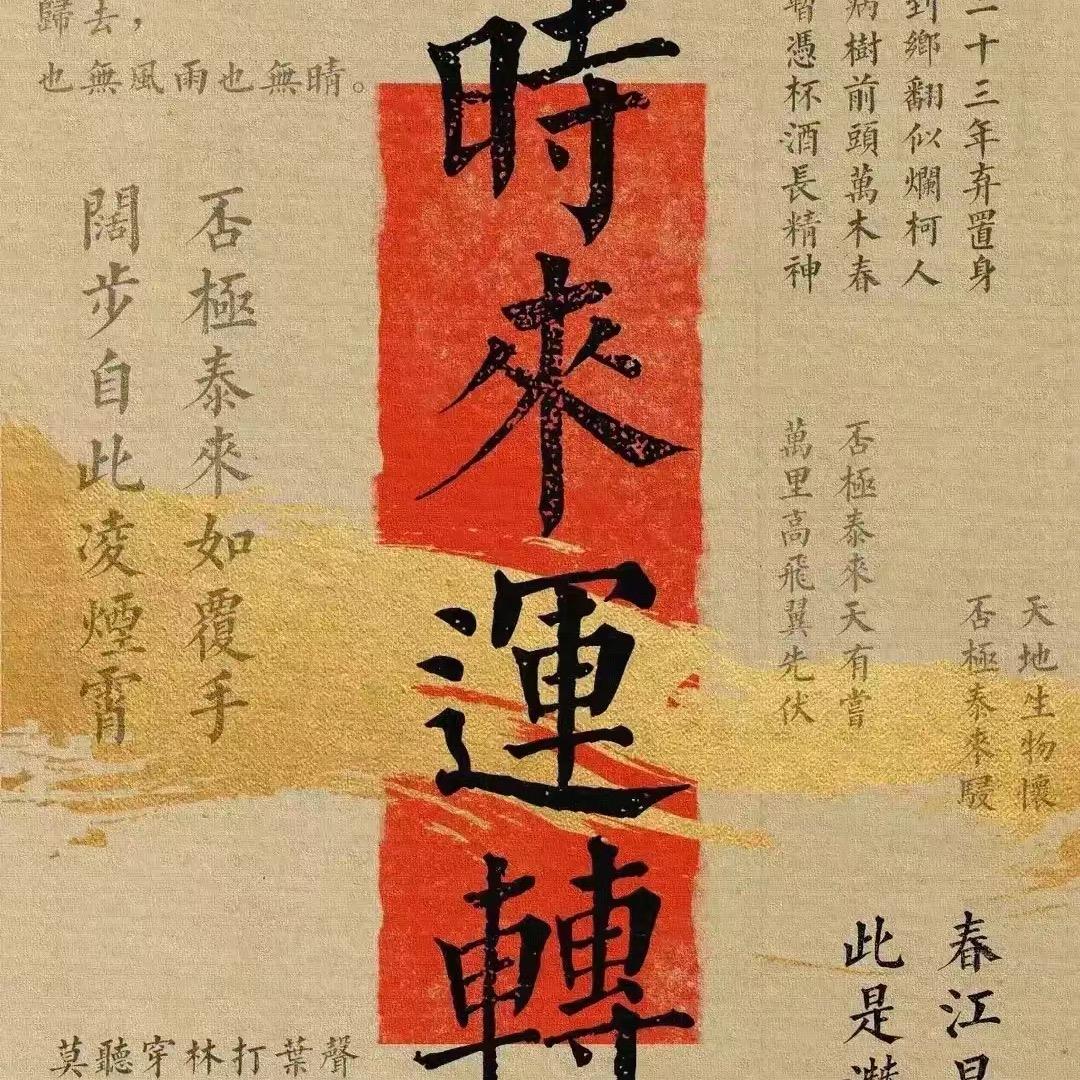 二十三年弃置身
到鄉翻似爛柯人
病樹前頭萬木春
暫憑杯酒長精神
天地生物懷
否極泰來駸
否極泰來天有嘗
萬里高飛翼先伏
春江
此是
時來運轉
歸去，
也無風雨也無晴。
否極泰來如覆手
闊步自此凌煙霄
莫聽穿林打葉聲